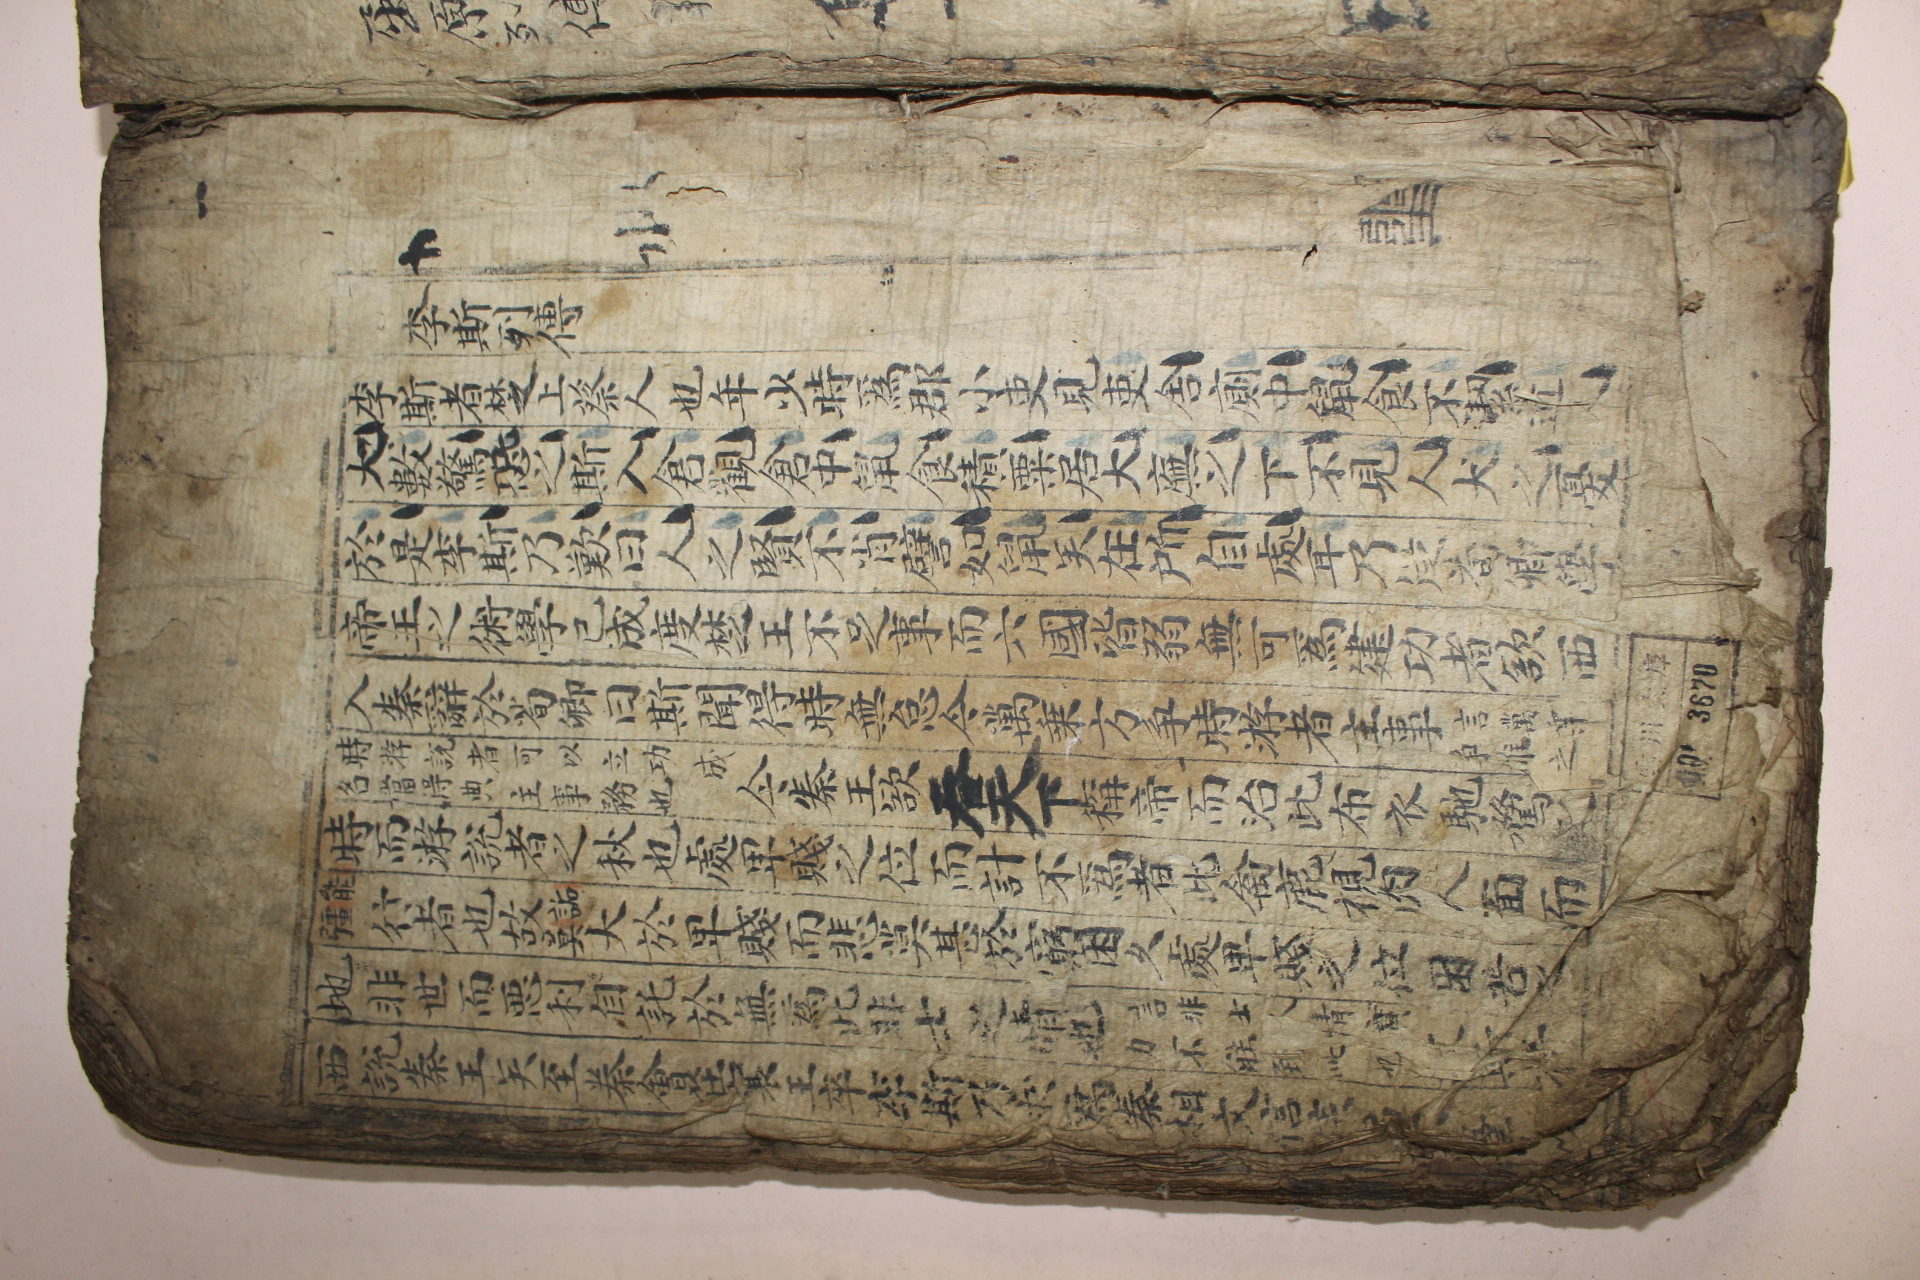 李斯列傳
李斯者楚上蔡人也年少時爲郡小吏見吏舍廁中鼠食不絜近人
犬數驚恐之斯入倉觀倉中鼠食積粟居大廡之下不見人犬之憂
於是李斯乃歎曰人之賢不肖譬如鼠矣在所自處耳乃從荀卿學
帝王之術學已成度楚王不足事而六國皆弱無可爲建功者欲西
入秦辭於荀卿曰斯聞得時無怠今萬乘方爭時游者主事
時游說者可以立功成
名當得典主事務也
今秦王欲吞天下稱帝而治此布衣馳騖之
時而游說者之秋也處卑賤之位而計不爲者此禽鹿視肉人面而
能彊
行者也故詬莫大於卑賤而悲莫甚於窮困久處卑賤之位困苦
之地非世而惡利自託於無爲此非士之情也
言非士人情實
力不能到此也
西說秦王矣至秦會莊襄王卒李斯乃求爲秦相文信
3670